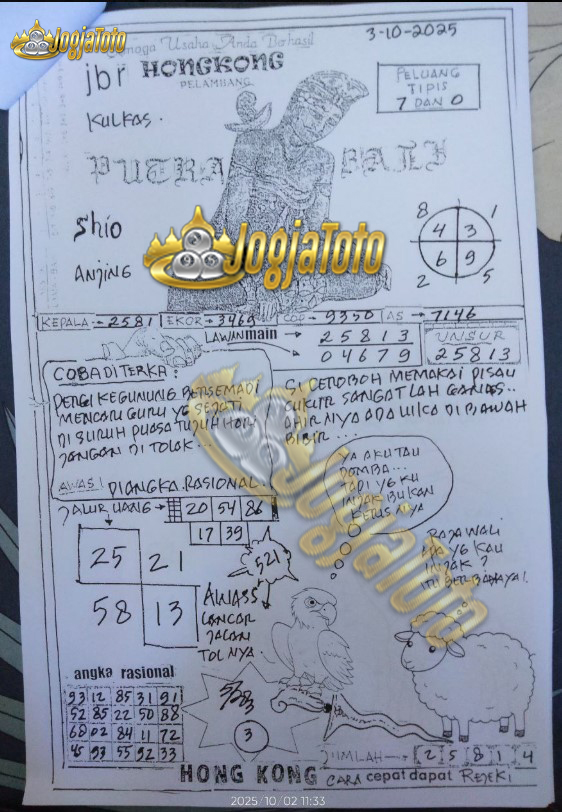 JogjaToto
Semoga Usaha Anda Berhasil
3-10-2025
jbr HONGKONG
PELAMBANG
PELUANG
TIPIS
7 DAN 0
KULKAS.
PUTRA BALI
Shio
ANJING
8 1
4 3
6 9
2 5
JogjaToto
KEPALA → 25811 EKOR → 3469 COP → 9350 AS → 7146
LAWAN main → 2 5 8 1 3
0 4 6 7 9
UNSUR
2 5 8 1 3
COBA DI TERKA:
PERGI KEGUNUNG BERSEMADI
MENCARI GURU YG SEJATI
DI SURUH PUASA TUJUH HARI
JANGAN DI TOLAK...
AWAS! DIANGKA.RASIONAL.
SI CEROBOH MEMAKAI PISAU
CUKUR SANGATLAH GANAS..
AHIRNYA ADA LUKA DIBAWAH
BIBIR...
YA AKU TAU
DOMBA...
TAPI YG KU
INJAK BUKAN
JALUR UANG → 20 54 86
17 39
25 21
58 13
521
AWASS
LANCAR
JALAN
TOLNYA.
RAJAWALI
APA YG KAU
INJAK?
ITU BERBAHAYA!.
JogjaToto
angka rasional
93 12 85 31 91
52 85 22 50 88
68 02 84 11 72
45 93 55 92 33
3
JUMLAH → 2 5 8 1 4
HONG KONG CARA cepat dapat REJEKI
2025/10/02 11:33